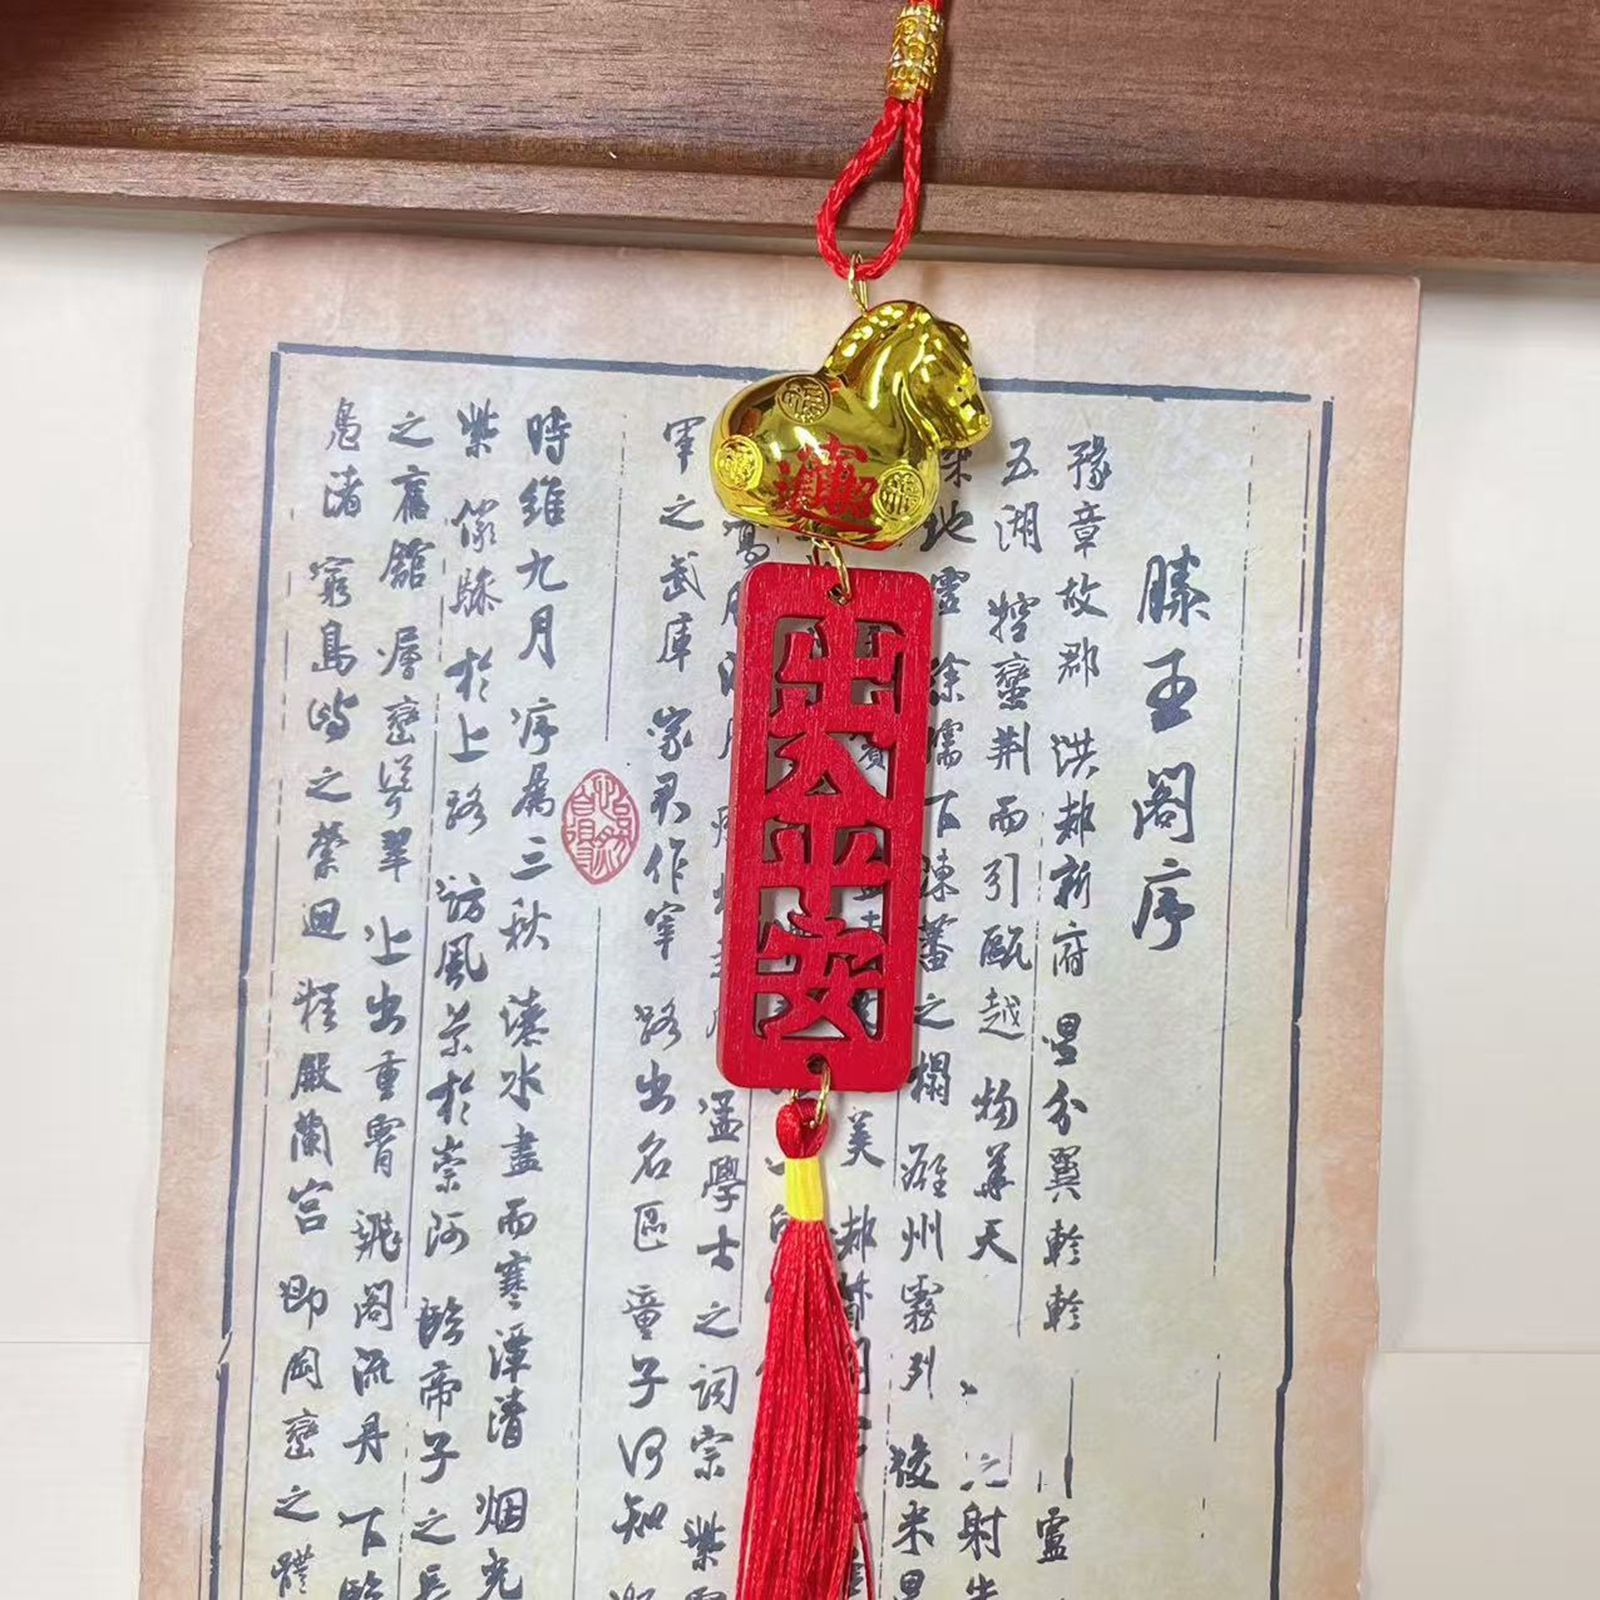 招財進寶
福
福
福
出入平安
滕王閣序
豫章故郡 洪都新府 星分翼軫軫
盧
五湖 控蠻荊而引甌越 物華天
射牛
傑地靈 徐孺下陳蕃之榻 雄州霧列 俊采星
美 都督閻
孟學士之詞宗 紫電
軍之武庫 家君作宰 路出名區 童子何知
悠然自得
時維九月 序屬三秋 潦水盡而寒潭清 烟光
紫 儼驂於上路 訪風景於崇阿 臨帝子之長
之舊館 層巒聳翠 上出重霄 飛閣流丹 下臨
鳧渚 窮島嶼之縈迴 桂殿蘭宮 即岡巒之體